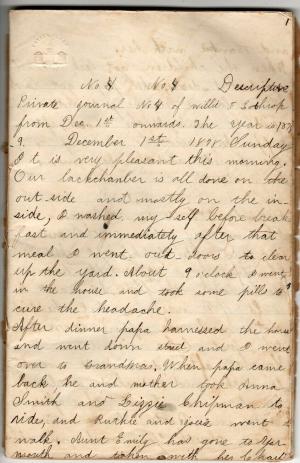 1
No. 4 No. 4 Descriptive
Private journal No 4 of willie F Lothrop
from Dec. 1st onwards. The year is 187
9. December 1st 1878 Sunday
It is very pleasant this morning.
Our backchamber is all done on the
out-side and mostly on the in-
side, I washed my self before break
fast and immediately after that
meal I went out doors to clear
up the yard. About 9 o'clock I went
in the house and took some pills to
cure the headache.
After dinner papa harnessed the horse
and went down street and I went
over to Grandmas. When papa came
back he and mother took Anna
Smith and Lizzie Chipman to
ride, and Ruthie and went
walk. Aunt Emily has gone to Yar-
mouth and taken with her